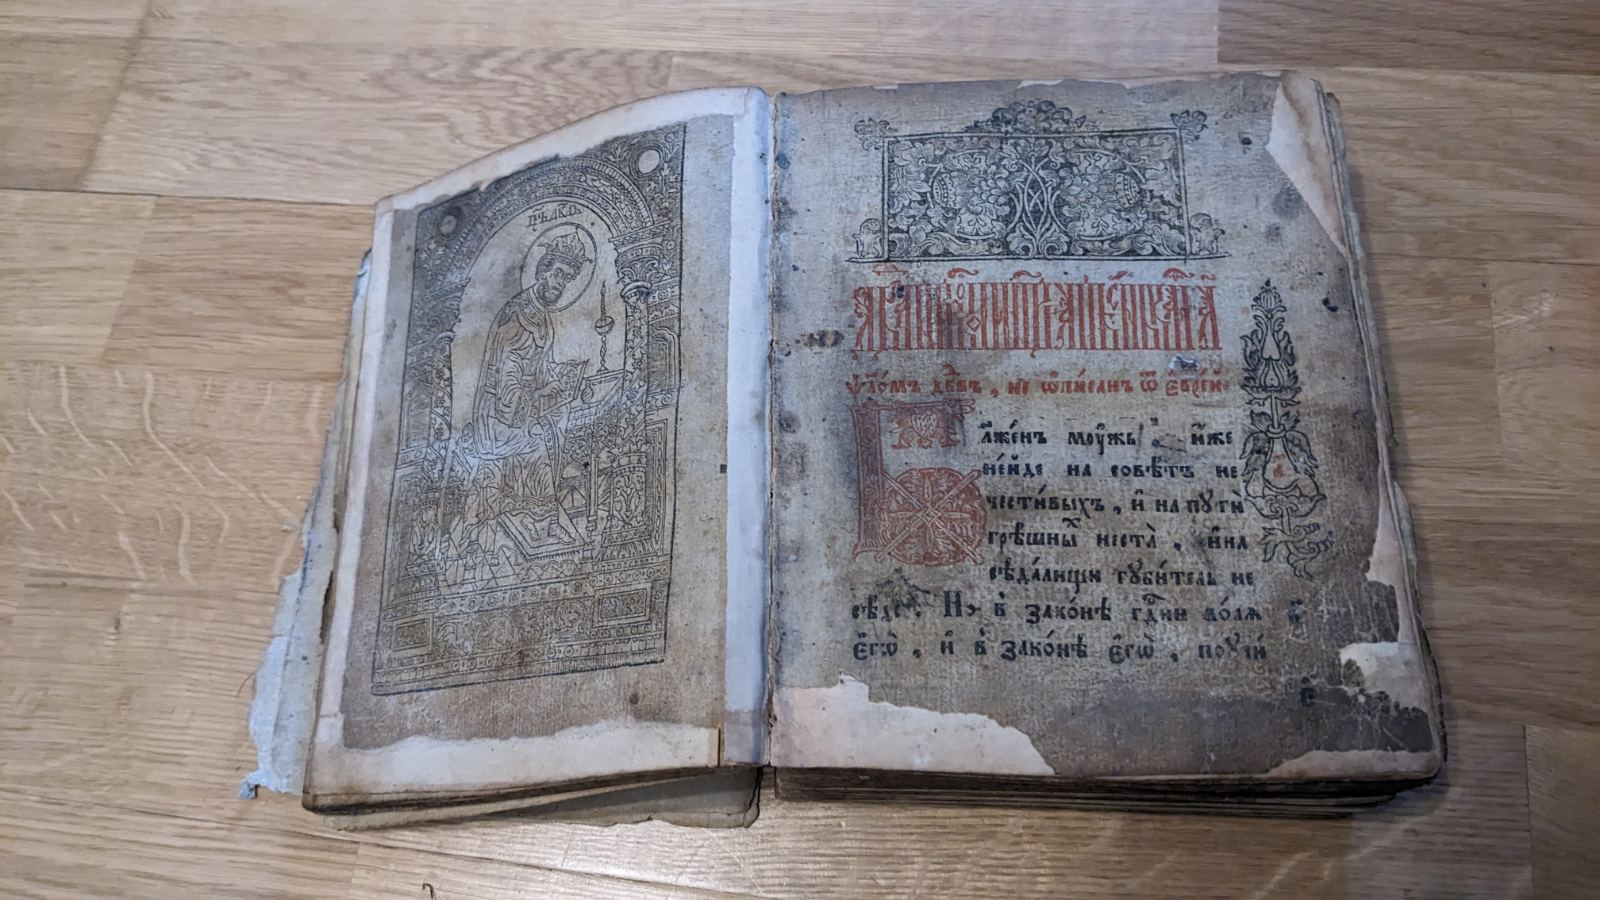 црь двдъ
ѱало́мъ двв҃ъ, не ѡ҆пи́санъ ѿ є҆вре́й
Бл҃же́нъ мꙋ́жъ и҆́же
не и҆́де на совѣ́тъ не
чести́выхъ, и҆ на пꙋтѝ
грѣ́шныⷯ не ста̀, и҆ на
сѣда́лищи гꙋби́тель не
сѣ́де. Но в̾ зако́нѣ гдⷭ҇ни во́лѧ
є҆гѡ̀, и҆ в̾ зако́нѣ є҆гѡ̀, поꙋчи́